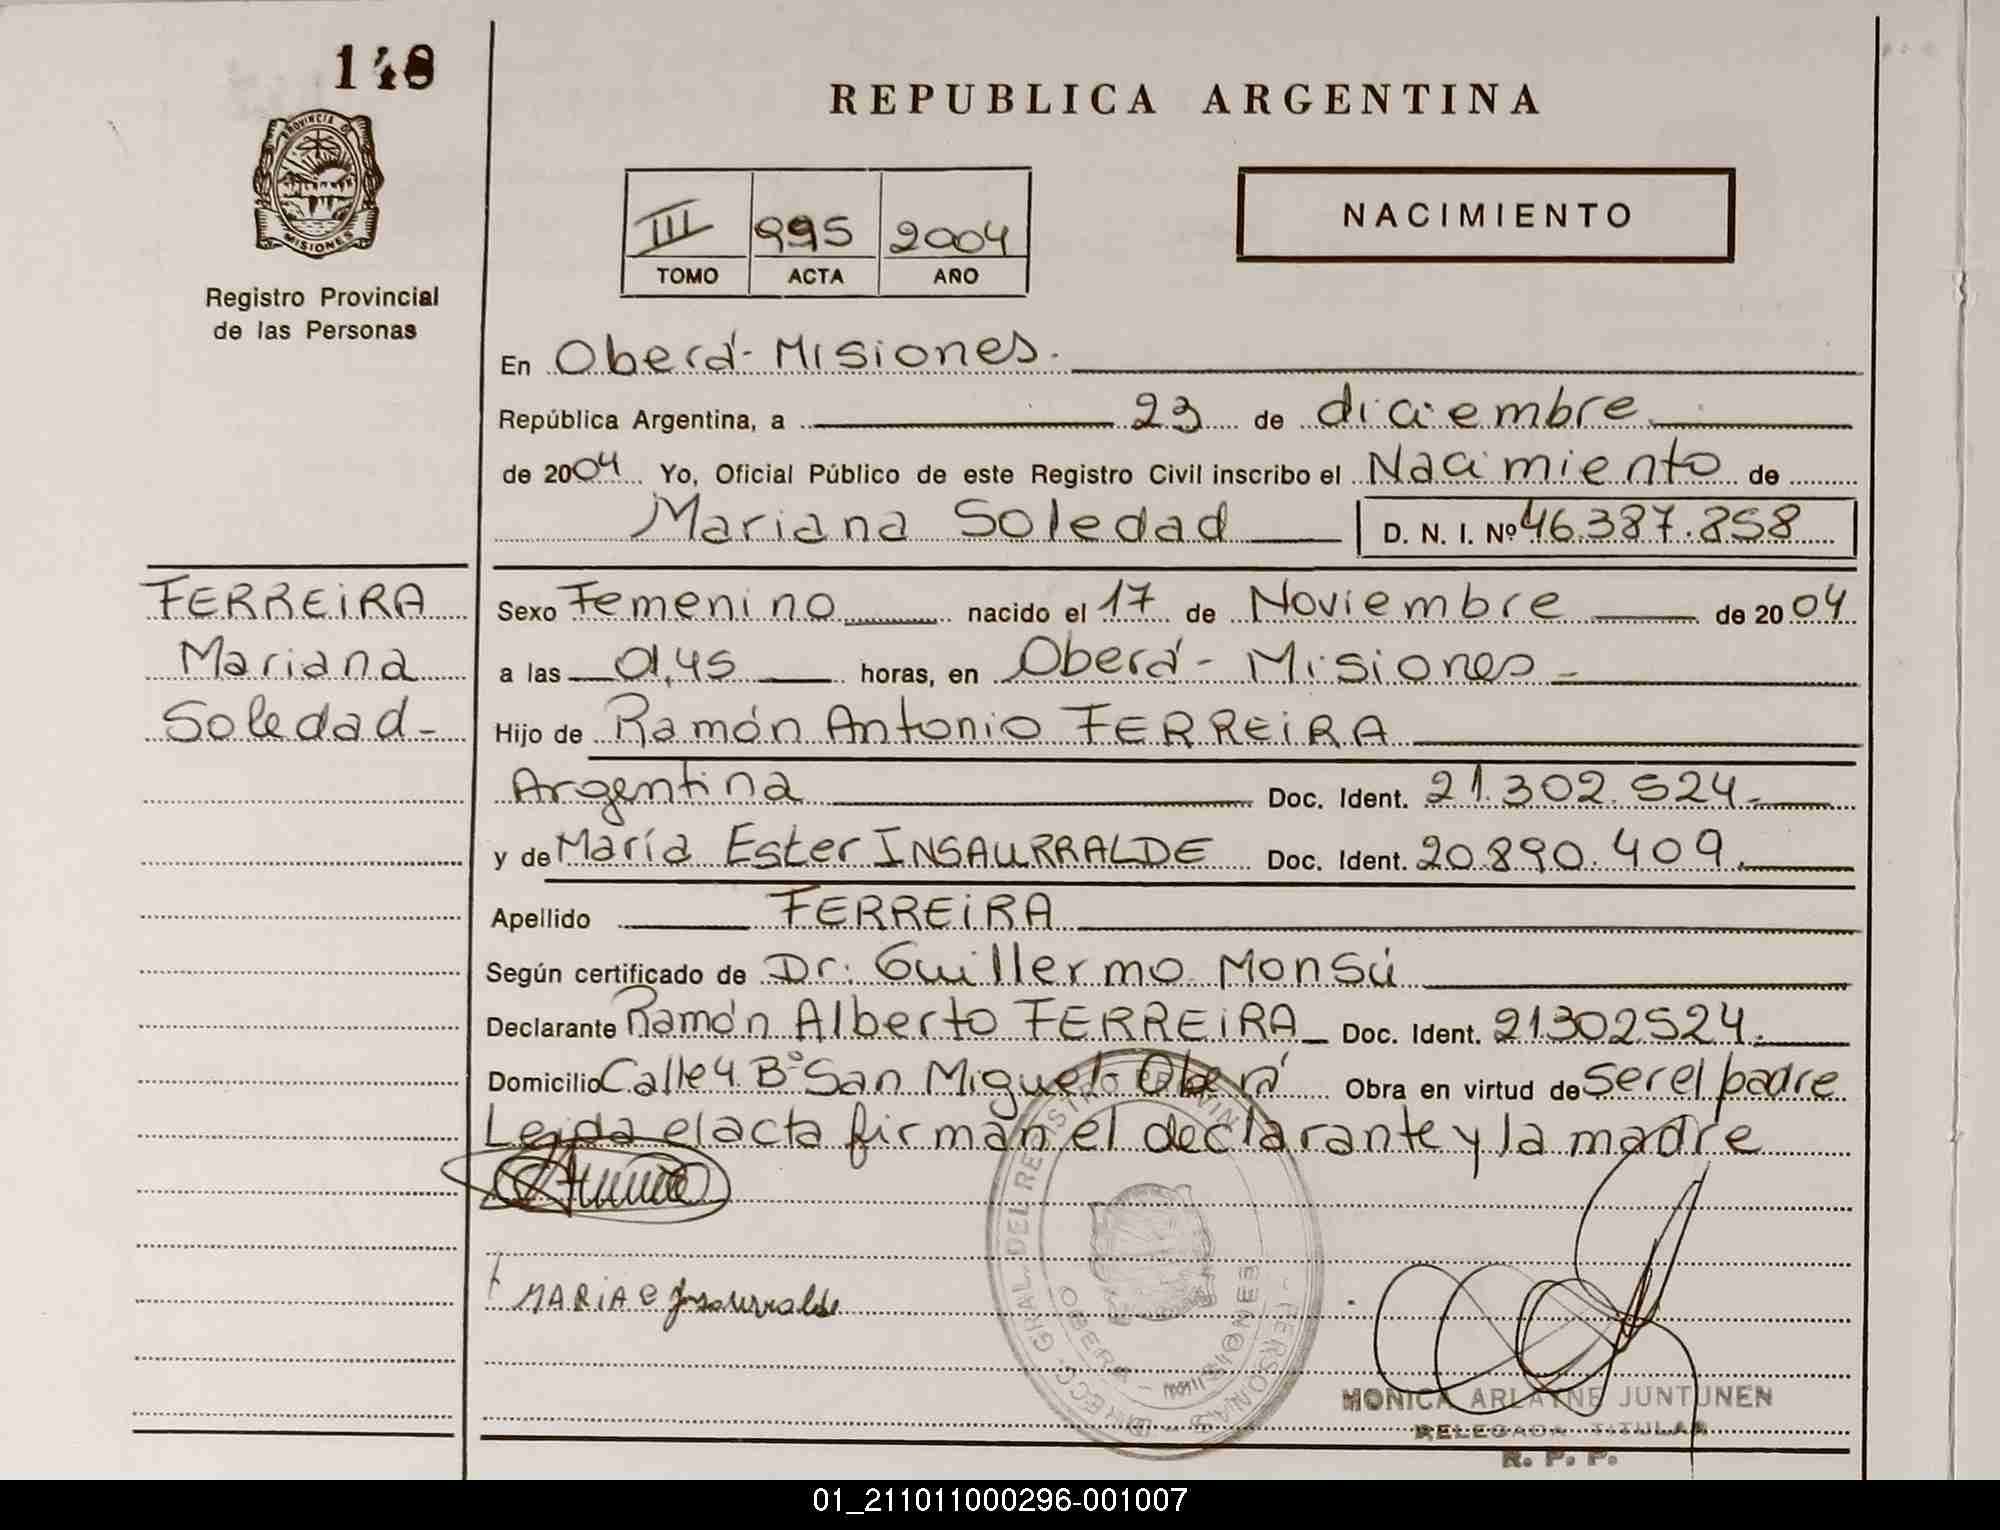 148
PROVINCIA DE
MISIONES
Registro Provincial
de las Personas
REPUBLICA ARGENTINA
III 995 2004
TOMO ACTA AÑO
NACIMIENTO
En Oberá - Misiones.
República Argentina, a 23 de diciembre
de 2004 Yo, Oficial Público de este Registro Civil inscribo el Nacimiento de
Mariana Soledad D. N. I. Nº 46.387.858
FERREIRA
Mariana
Soledad -
Sexo Femenino nacido el 17 de Noviembre de 2004
a las 01,45 horas, en Oberá - Misiones -
Hijo de Ramón Antonio FERREIRA
Argentina Doc. Ident. 21.302.524.
y de María Ester INSAURRALDE Doc. Ident. 20.890.409.
Apellido FERREIRA
Según certificado de Dr. Guillermo Monsú
Declarante Ramón Alberto FERREIRA Doc. Ident. 21302524.
Domicilio Calle 4 Bº San Miguel - Oberá Obra en virtud de ser el padre
Leida el acta firman el declarante y la madre
MARIA E Insaurralde
DIRECC. GRAL. DEL REGISTRO PROVINCIAL PERSONAS
OBERA - MISIONES
MONICA ARLAYNE JUNTUNEN
DELEGADA TITULAR
R. P. P.
01_211011000296-001007